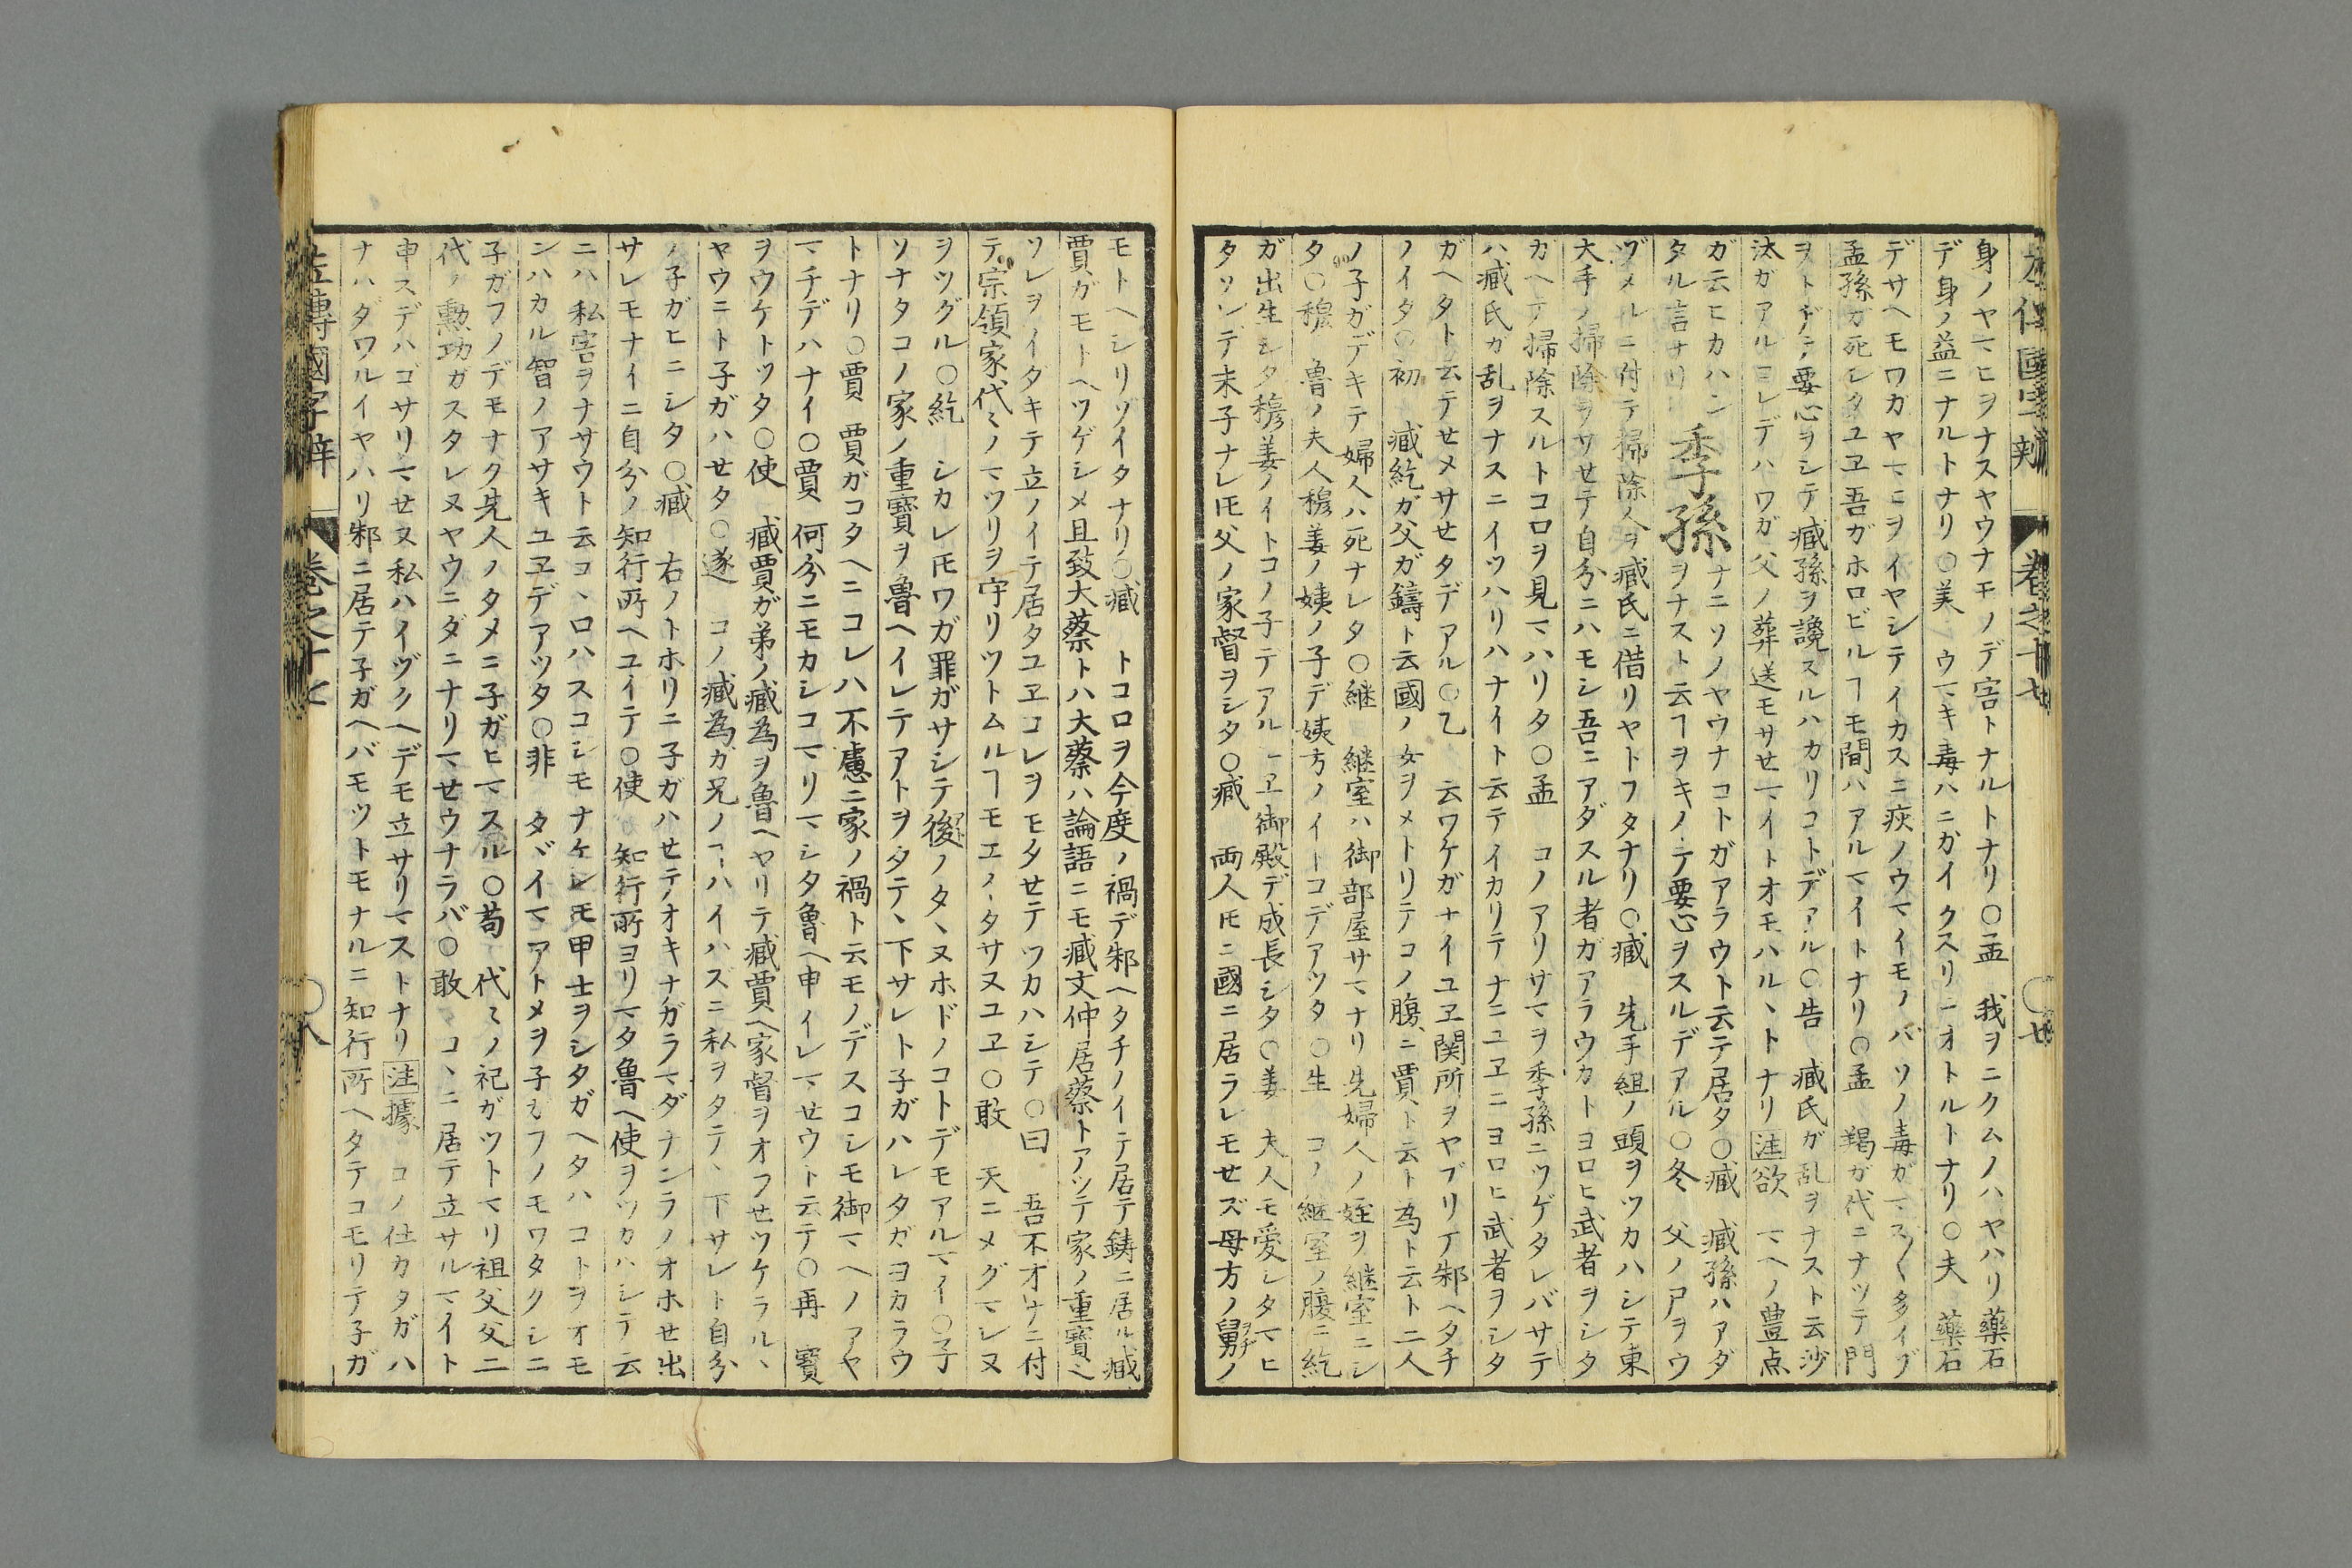 左傳國字辨 卷之十七 〇廿
身ノヤマヒヲナスヤウナモノデ害トナルトナリ〇孟 我ヲニクムノハヤハリ藥石
デ身ノ益ニナルトナリ〇美 ウマキ毒ハニガイクスリニオトルトナリ〇夫 藥石
デサヘモワガヤマヒヲイヤシテイカスニ疢ノウマイモノバソノ毒ガマス〳〵多イゾ
孟孫ガ死シタユヱ吾ガホロビルヿモ間ハアルマイトナリ〇孟 羯ガ代ニナツテ門
ヲトヂテ要心ヲシテ臧孫ヲ讒スルハカリコトデアル〇告 臧氏ガ乱ヲナスト云沙
汰ガアルコレデハワガ父ノ葬送モサセマイトオモハルヽトナリ注欲 マヘノ豊点
ガ云ヒカハン季孫ナニソノヤウナコトガアラウト云テ居タ〇臧 臧孫ハアダ
タル言サリ ヲナスト云ヿヲキノテ要心ヲスルデアル〇冬 父ノ尸ヲウ
ヅメルニ付テ掃除人ヲ臧氏ニ借リヤトフタナリ〇臧 先手組ノ頭ヲツカハシテ東
大手ノ掃除ヲサセテ自分ニハモシ吾ニアダスル者ガアラウカトヨロヒ武者ヲシタ
ガヘテ掃除スルトコロヲ見マハリタ〇孟 コノアリサマヲ季孫ニツゲタレバサテ
ハ臧氏ガ乱ヲナスニイツハリハナイト云テイカリテナニユヱニヨロヒ武者ヲシタ
ガヘタト云テせメサせタデアル〇乙 云ワケガナイユヱ関所ヲヤブリテ邾ヘタチ
ノイタ〇初 臧紇ガ父ガ鑄ト云國ノ女ヲメトリテコノ腹ニ賈ト云ト為ト云ト二人
ノ子ガデキテ婦人ハ死ナレタ〇継 継室ハ御部屋サマナリ先婦人ノ姪ヲ継室ニシ
タ〇穆 魯ノ夫人穆姜ノ姨ノ子デ姨方ノイトコデアツタ〇生 コノ継室ノ腹ニ紇
ガ出生シタ穆姜ノイトコノ子デアルユヱ御殿デ成長シタ〇姜 夫人モ愛シタマヒ
タソレデ末子ナレ𪜈父ノ家督ヲシタ〇臧 両人𪜈ニ國ニ居ラレモせズ母方ノ舅ノ
モトヘシリゾイタナリ〇臧 トコロヲ今度ノ禍デ邾ヘタチノイテ居テ鑄ニ居ル臧
賈ガモトヘツゲシメ且致大蔡トハ大蔡ハ論語ニモ臧文仲居蔡トアツテ家ノ重寳也
ソレヲイタキテ立ノイテ居タユヱコレヲモタせテツカハシテ〇曰 吾不才ナニ付
テ宗領家代〻ノマツリヲ守リツトムルヿモエノヽタサヌユヱ〇敢 天ニメグマレヌ
ヲツグル〇紇 シカレ𪜈ワガ罪ガサシテ後ノタヽヌホドノコトデモアルマイ〇子
ソナタコノ家ノ重寳ヲ魯ヘイレテアトヲタテヽ下サレト子ガハレタガヨカラウ
トナリ〇賈 賈ガコタヘニコレハ不慮ニ家ノ禍ト云モノデスコシモ御マヘノアヤ
マチデハナイ〇賈 何分ニモカシコマリマシタ魯ヘ申イレマせウト云テ〇再 寳
ヲウケトツタ〇使 臧賈ガ弟ノ臧為ヲ魯ヘヤリテ臧賈ヘ家督ヲオフせツケラルヽ
ヤウニト子ガハせタ〇遂 コノ臧為ガ兄ノコトハイハズニ私ヲタテヽ下サレト自分
ノ子ガヒニシタ〇臧 右ノトホリニ子ガハせテオキナガラマダナンラノオホせ出
サレモナイニ自分ノ知行所ヘユイテ〇使 知行所ヨリマタ魯ヘ使ヲツカハシテ云
ニハ私害ヲナサウト云コヽロハスコシモナケレ𪜈甲士ヲシタガヘタハコトヲオモ
ンハカル智ノアサキユヱデアツタ〇非 タヾイマアトメヲ子ヒフノモワタクシニ
子ガフノデモナク先人ノタメニ子ガヒマスル〇苟 代〻ノ祀ガツトマリ祖父父二
代ノ勲功ガスタレヌヤウニダニナリマせウナラバ〇敢 コヽニ居テ立サルマイト
申スデハゴサリマせヌ私ハイヅクヘデモ立サリマストナリ注據 コノ仕カタガハ
ナハダワルイヤハリ邾ニ居テ子ガヘバモツトモナルニ知行所ヘタテコモリテ子ガ
左傳國字辨 卷之十七 〇八